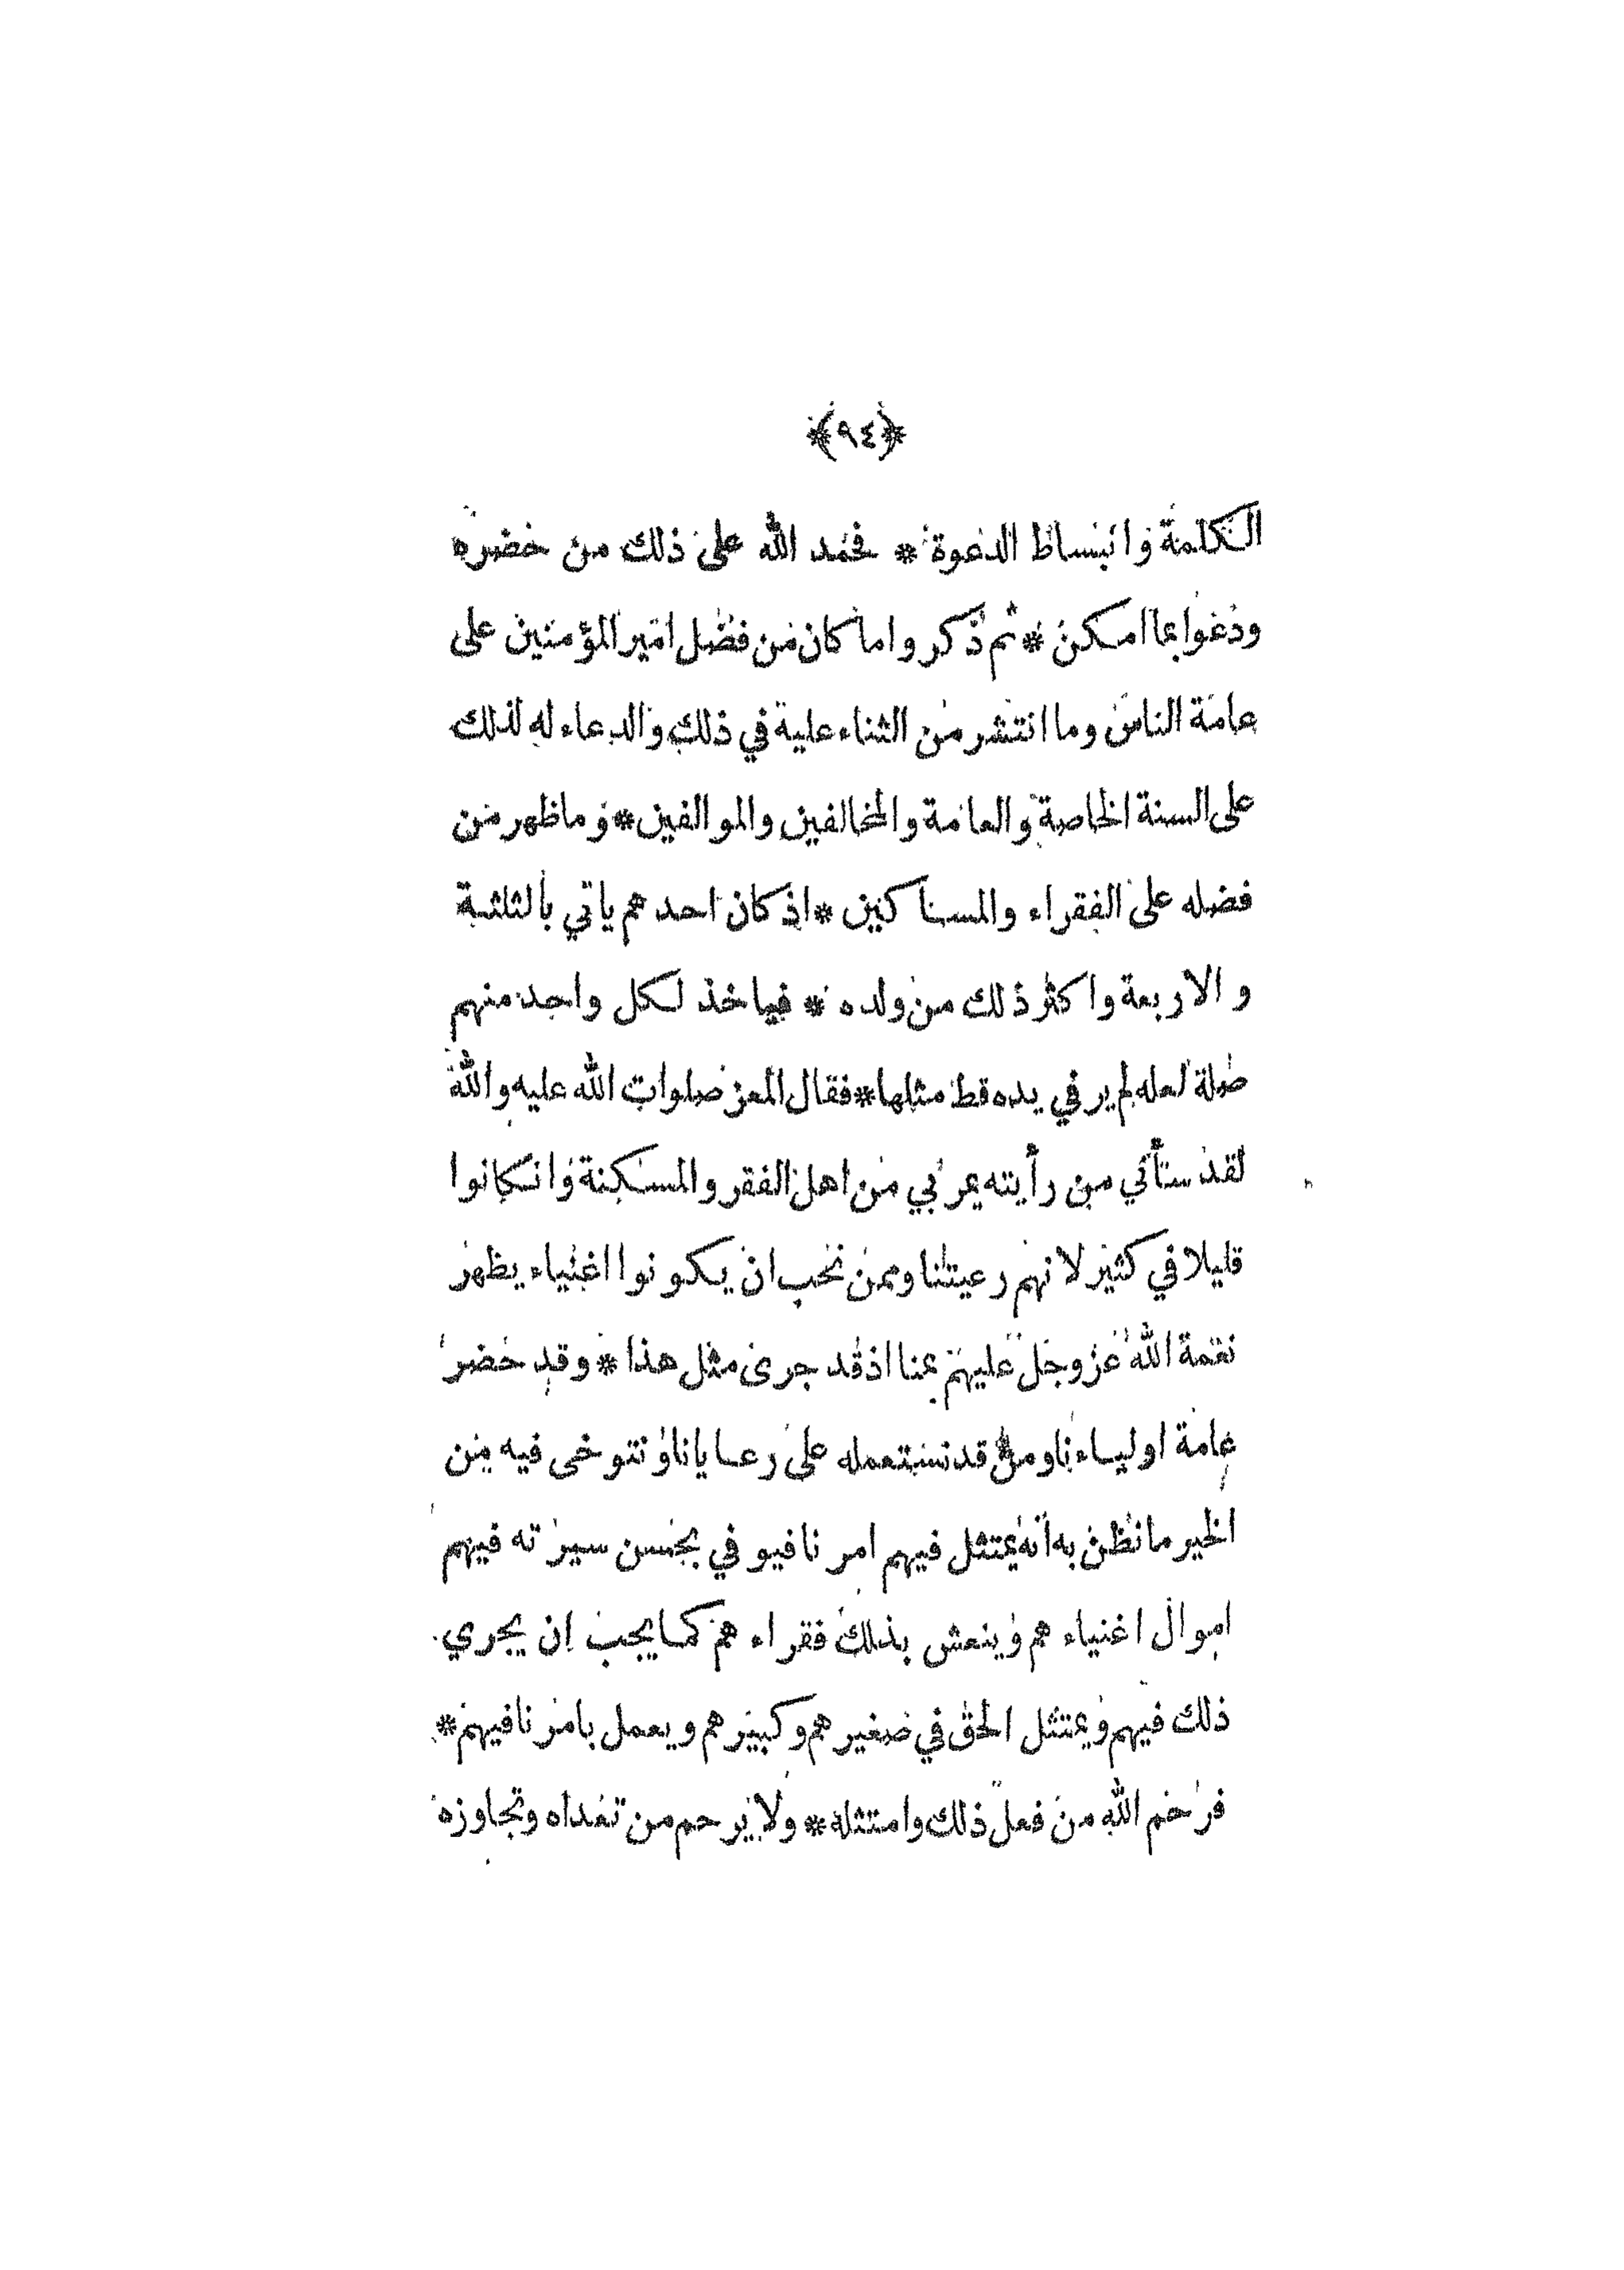 ﴿٩٤﴾
الكلمة وانبساط الدعوة * فحمد الله على ذلك من حضره
ودعوا بما امكن * ثم ذكر واما كان من فضل امير المؤمنين على
عامة الناس وما انتشر من الثناء عليه في ذلك والدعاء له لذلك
على السنة الخاصة والعامة والمخالفين والموالفين * وما ظهر من
فضله على الفقراء والمساكين * اذ كان احدهم ياتي بالثلثة
والاربعة واكثر ذلك من ولده * فياخذ لكل واحد منهم
صلة لعله لم ير في يده قط مثلها * فقال المعز صلوات الله عليه والله
لقد ستأتي من رأيته يمر بي من اهل الفقر والمسكنة وانكانوا
قليلا في كثير لانهم رعيتنا وممن نحب ان يكونوا اغنياء يظهر
نعمة الله عز وجل عليهم بمنا اذ قد جرى مثل هذا * وقد حضر
عامة اولياءنا ومن قد نستعمله على رعايانا ونتوخى فيه من
الخير ما نظن به انه يمتثل فيهم امرنا فيوفي بحسن سيرته فيهم
اموال اغنياءهم وينعش بذلك فقراءهم كما يجب ان يجري
ذلك فيهم ويمتثل الحق في صغيرهم وكبيرهم ويعمل بامرنا فيهم *
فرحم الله من فعل ذلك وامتثله * ولا يرحم من تعداه وتجاوزه